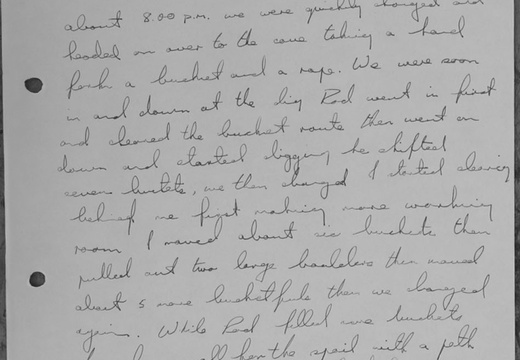 about 8.00 p.m. we were quickly changed and
headed on over to the cave taking a hand
fork a bucket and a rope. We were soon
in and down at the dig Rod went in first
and cleared the bucket route then went on
down and started digging he shifted
seven buckets, we then changed I started clearing
behind me first making more working
room I moved about six buckets then
pulled out two large boulders then moved
about 5 more bucketfuls then we changed
again. While Rod filled more buckets
all the spoil with a path